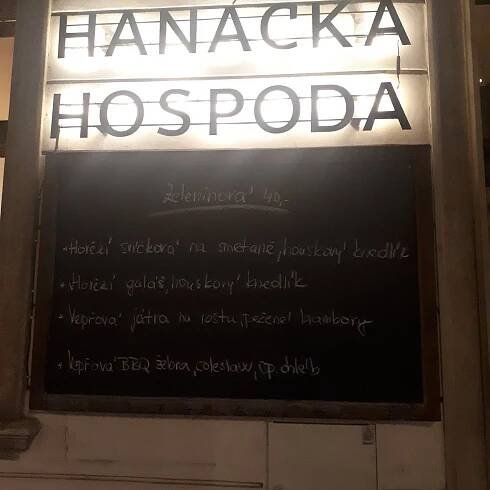 HANÁCKÁ
HOSPODA
Zeleninová 40,-
• Hovězí svíčková na smetaně, houskový knedlík
• Hovězí guláš, houskový knedlík
• Vepřová játra na roštu, pečené brambory
• Vepřová BBQ žebra, coleslaw, op. chléb